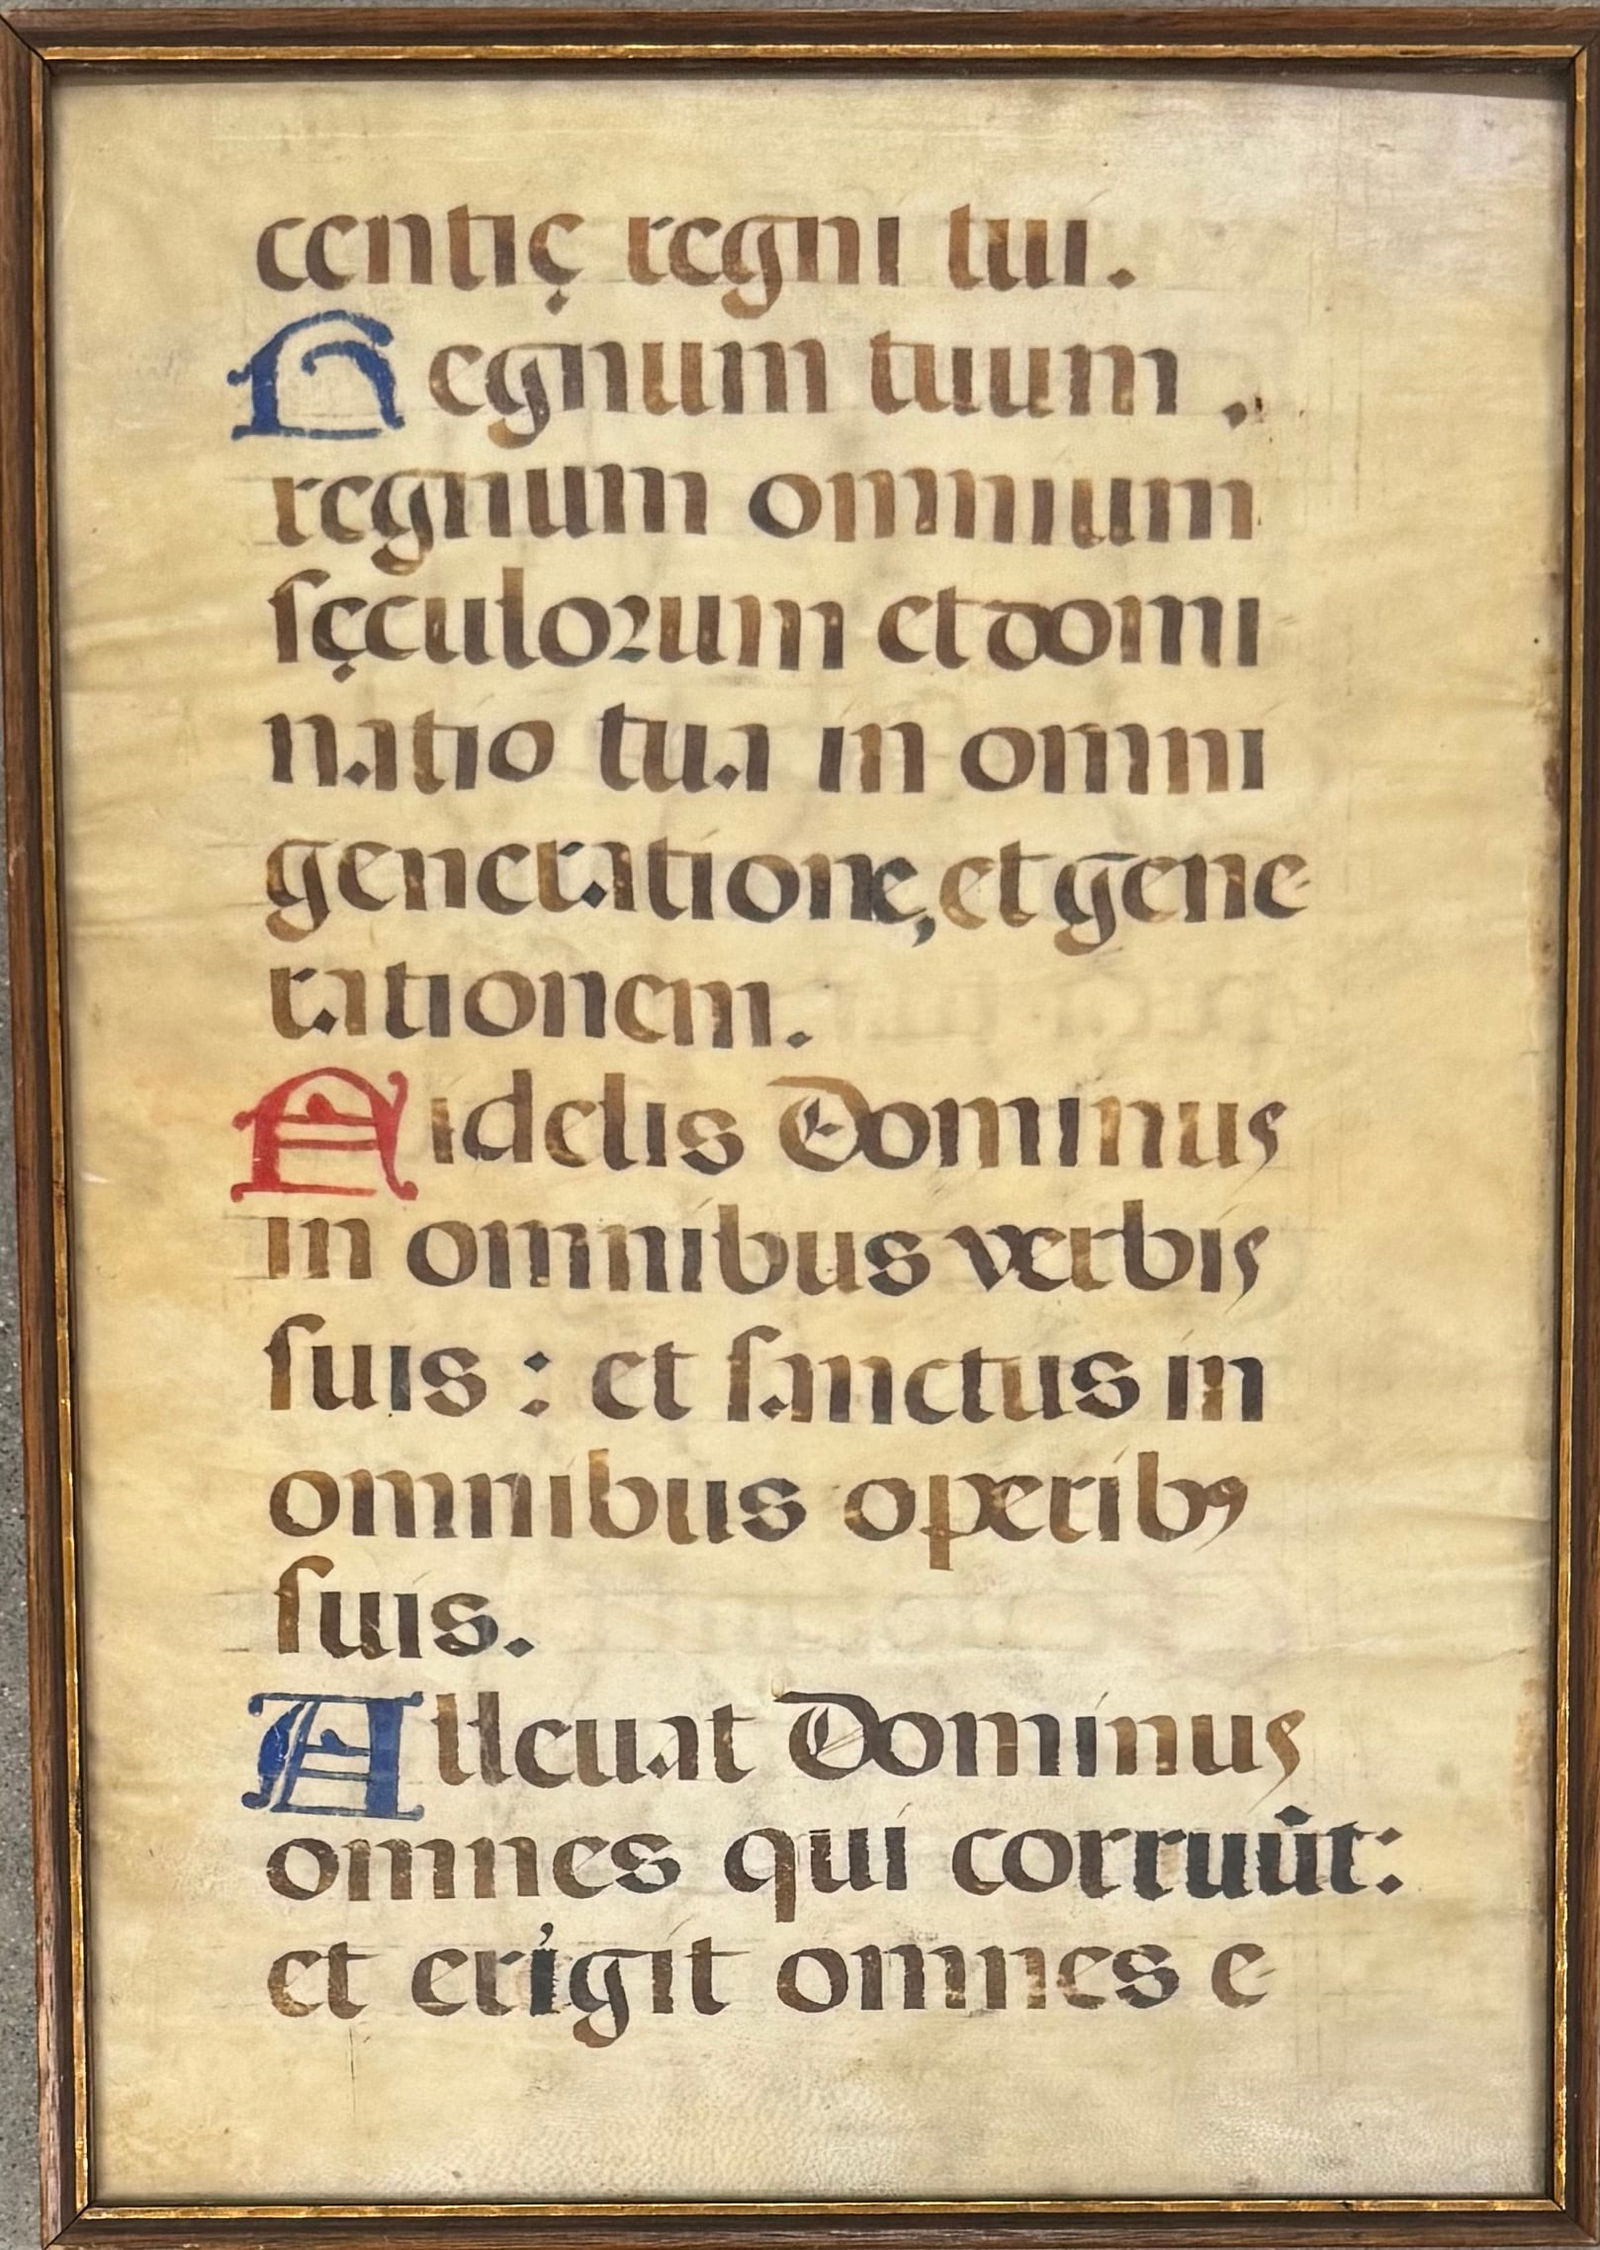 centię regni tui.
Regnum tuum.
regnum omnium
sęculorum et domi
natio tua in omni
generatione, et gene
rationem.
Fidelis Dominus
in omnibus verbis
suis : et sanctus in
omnibus operibꝰ
suis.
Alleuat Dominus
omnes qui corruūt:
et erigit omnes e